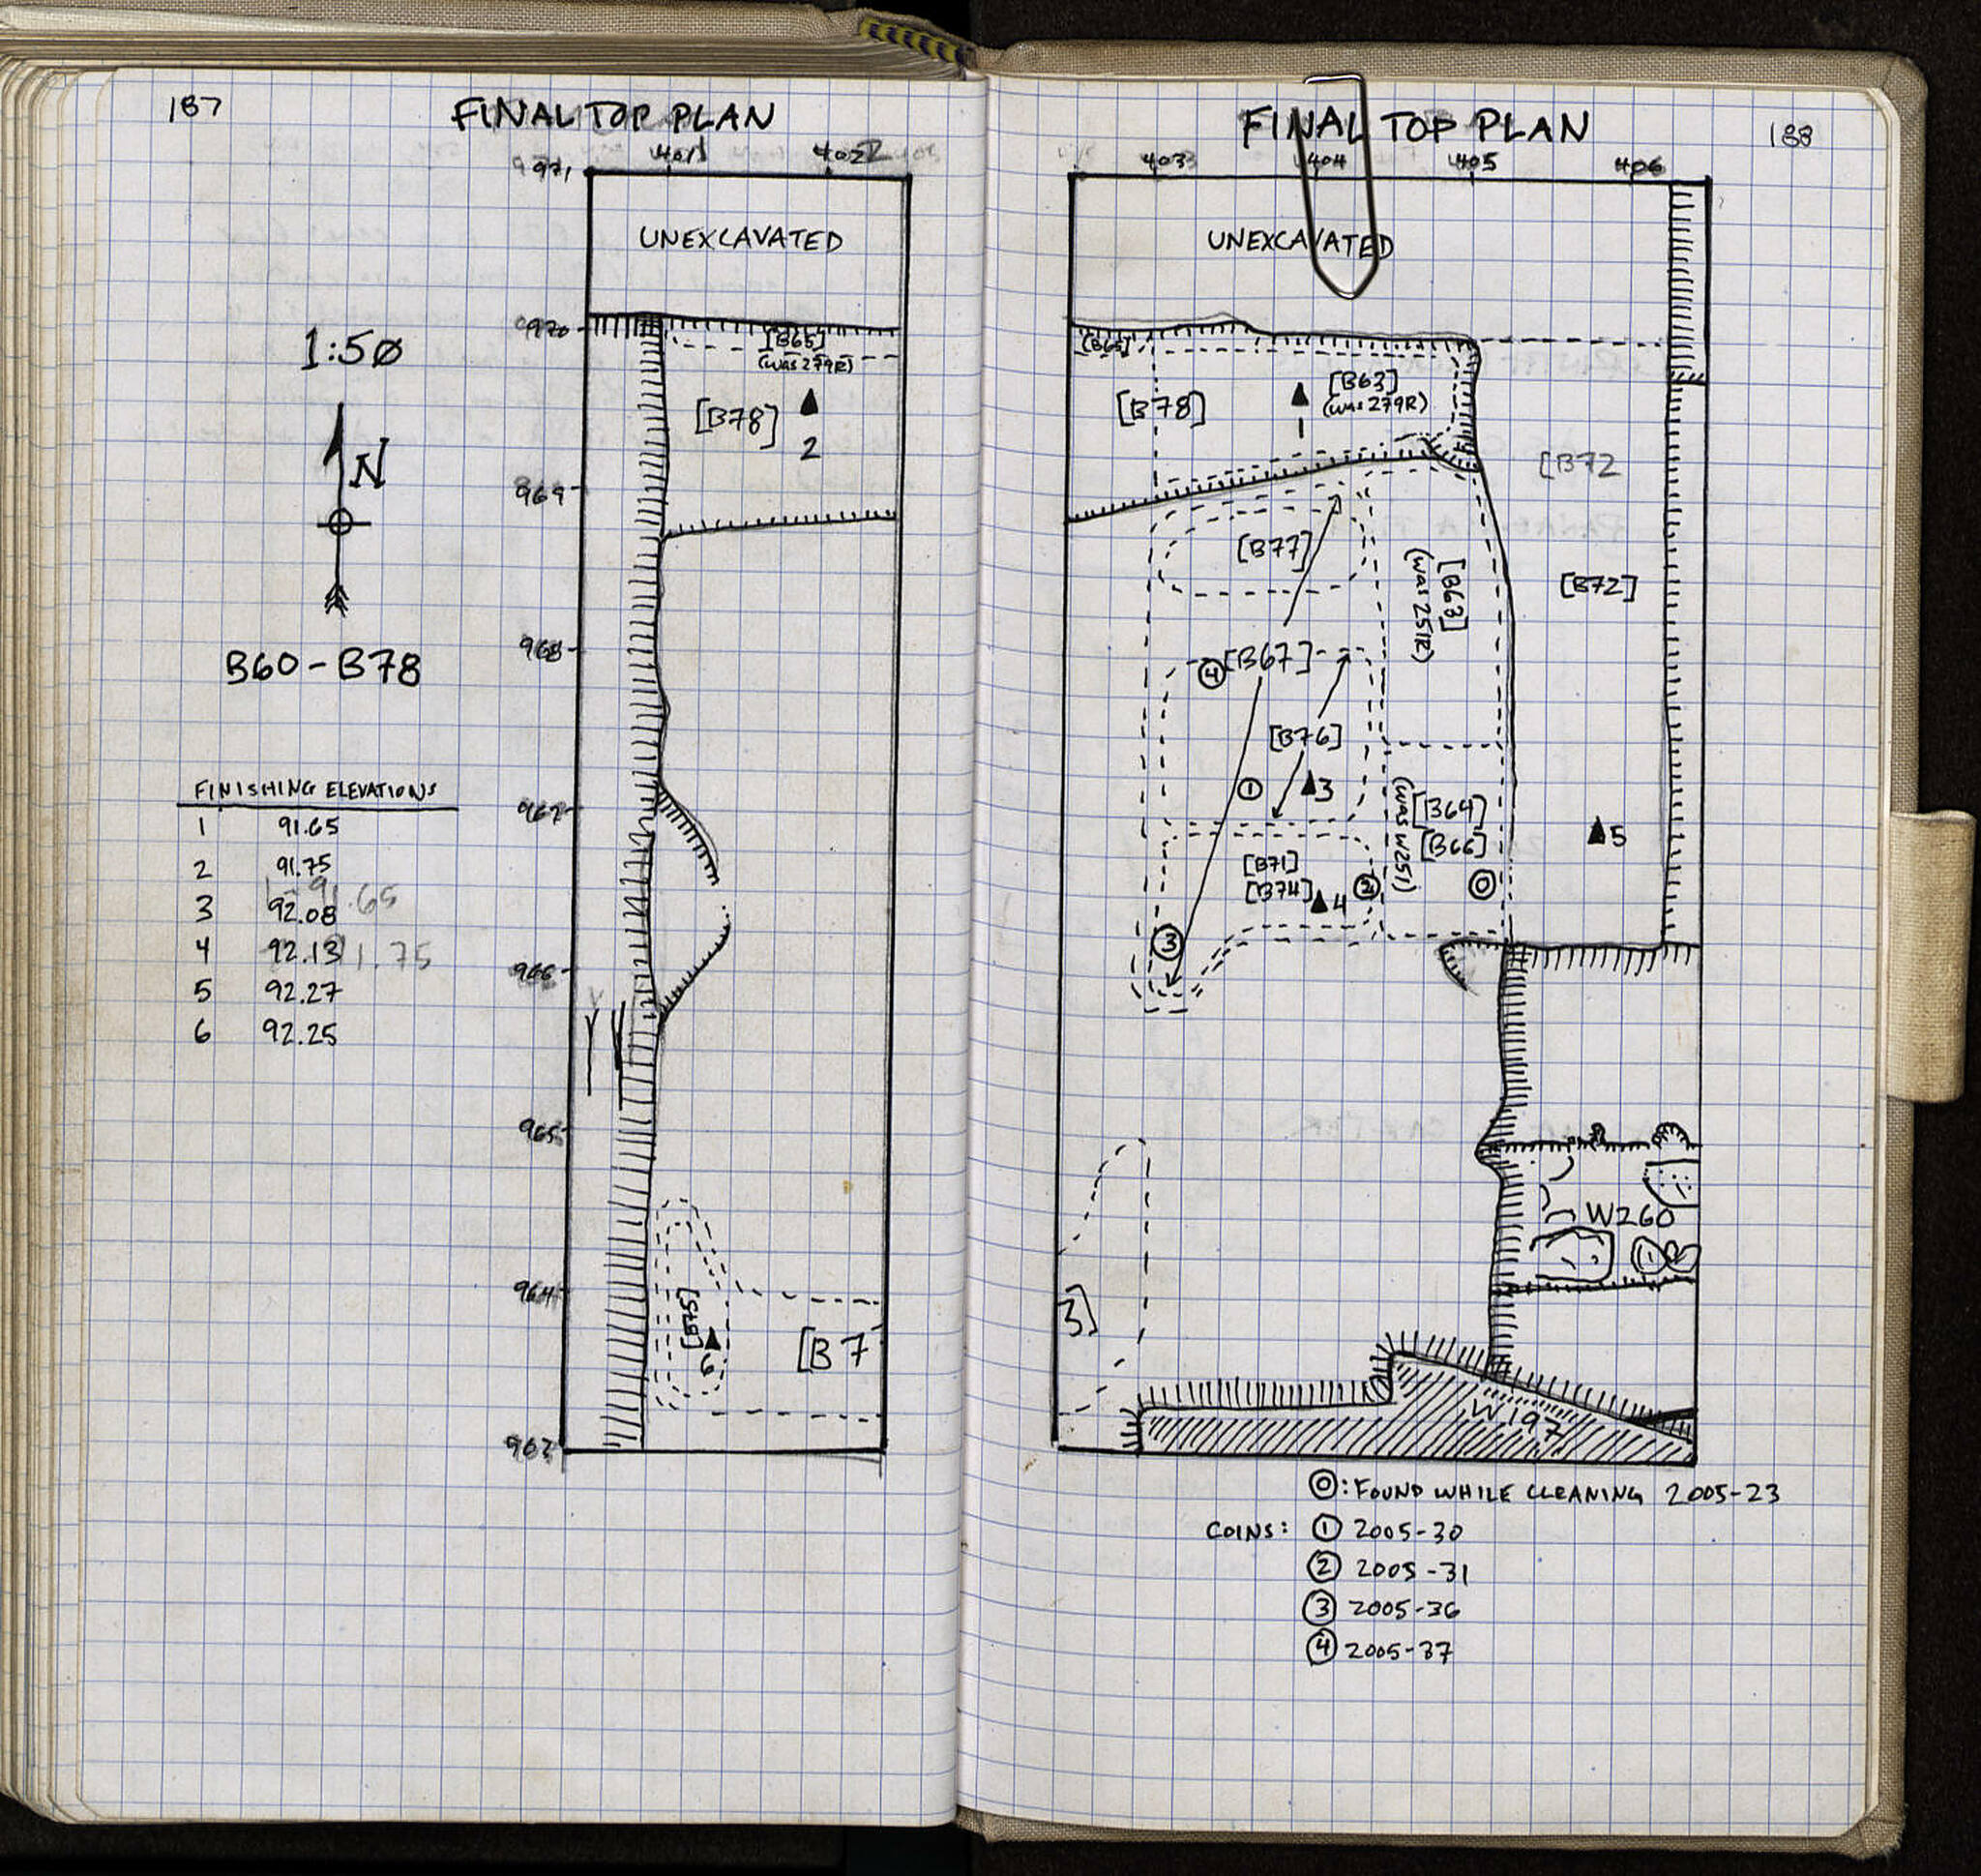 187
FINAL TOP PLAN
971
401
402
UNEXCAVATED
970
[B65]
(was 279R)
1:50
[B78]
2
N
969
968
B60-B78
FINISHING ELEVATIONS
1 91.65
2 91.75
3 92.08
4 92.13
5 92.27
6 92.25
91.65
1.75
967
966
965
964
[B75]
6
[B7
963
FINAL TOP PLAN
188
403
404
405
406
UNEXCAVATED
[B65]
[B78]
[B63]
(was 279R)
1
[B72
[B77]
[B63]
(was 251R)
[B72]
4
[B67]
[B76]
1
3
[B64]
[B66]
(was W251)
5
[B71]
[B74]
4
2
0
3
W260
3]
W197
0: FOUND WHILE CLEANING 2005-23
COINS: 1 2005-30
2 2005-31
3 2005-36
4 2005-37